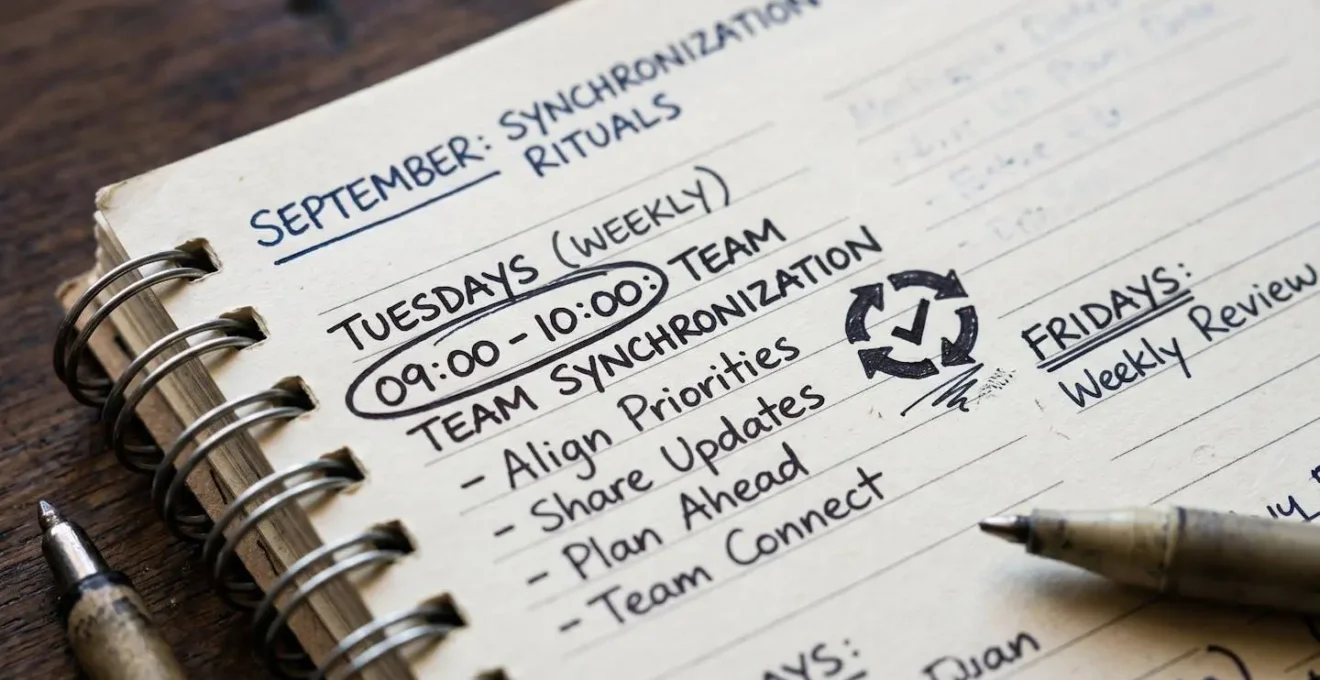 SEPTEMBER: SYNCHRONIZATION
RITUALS
TUESDAYS (WEEKLY)
09:00 - 10:00: TEAM
TEAM SYNCHRONIZATION
- Align Priorities
- Share Updates
- Plan Ahead
- Team Connect
FRIDAYS:
Weekly Review